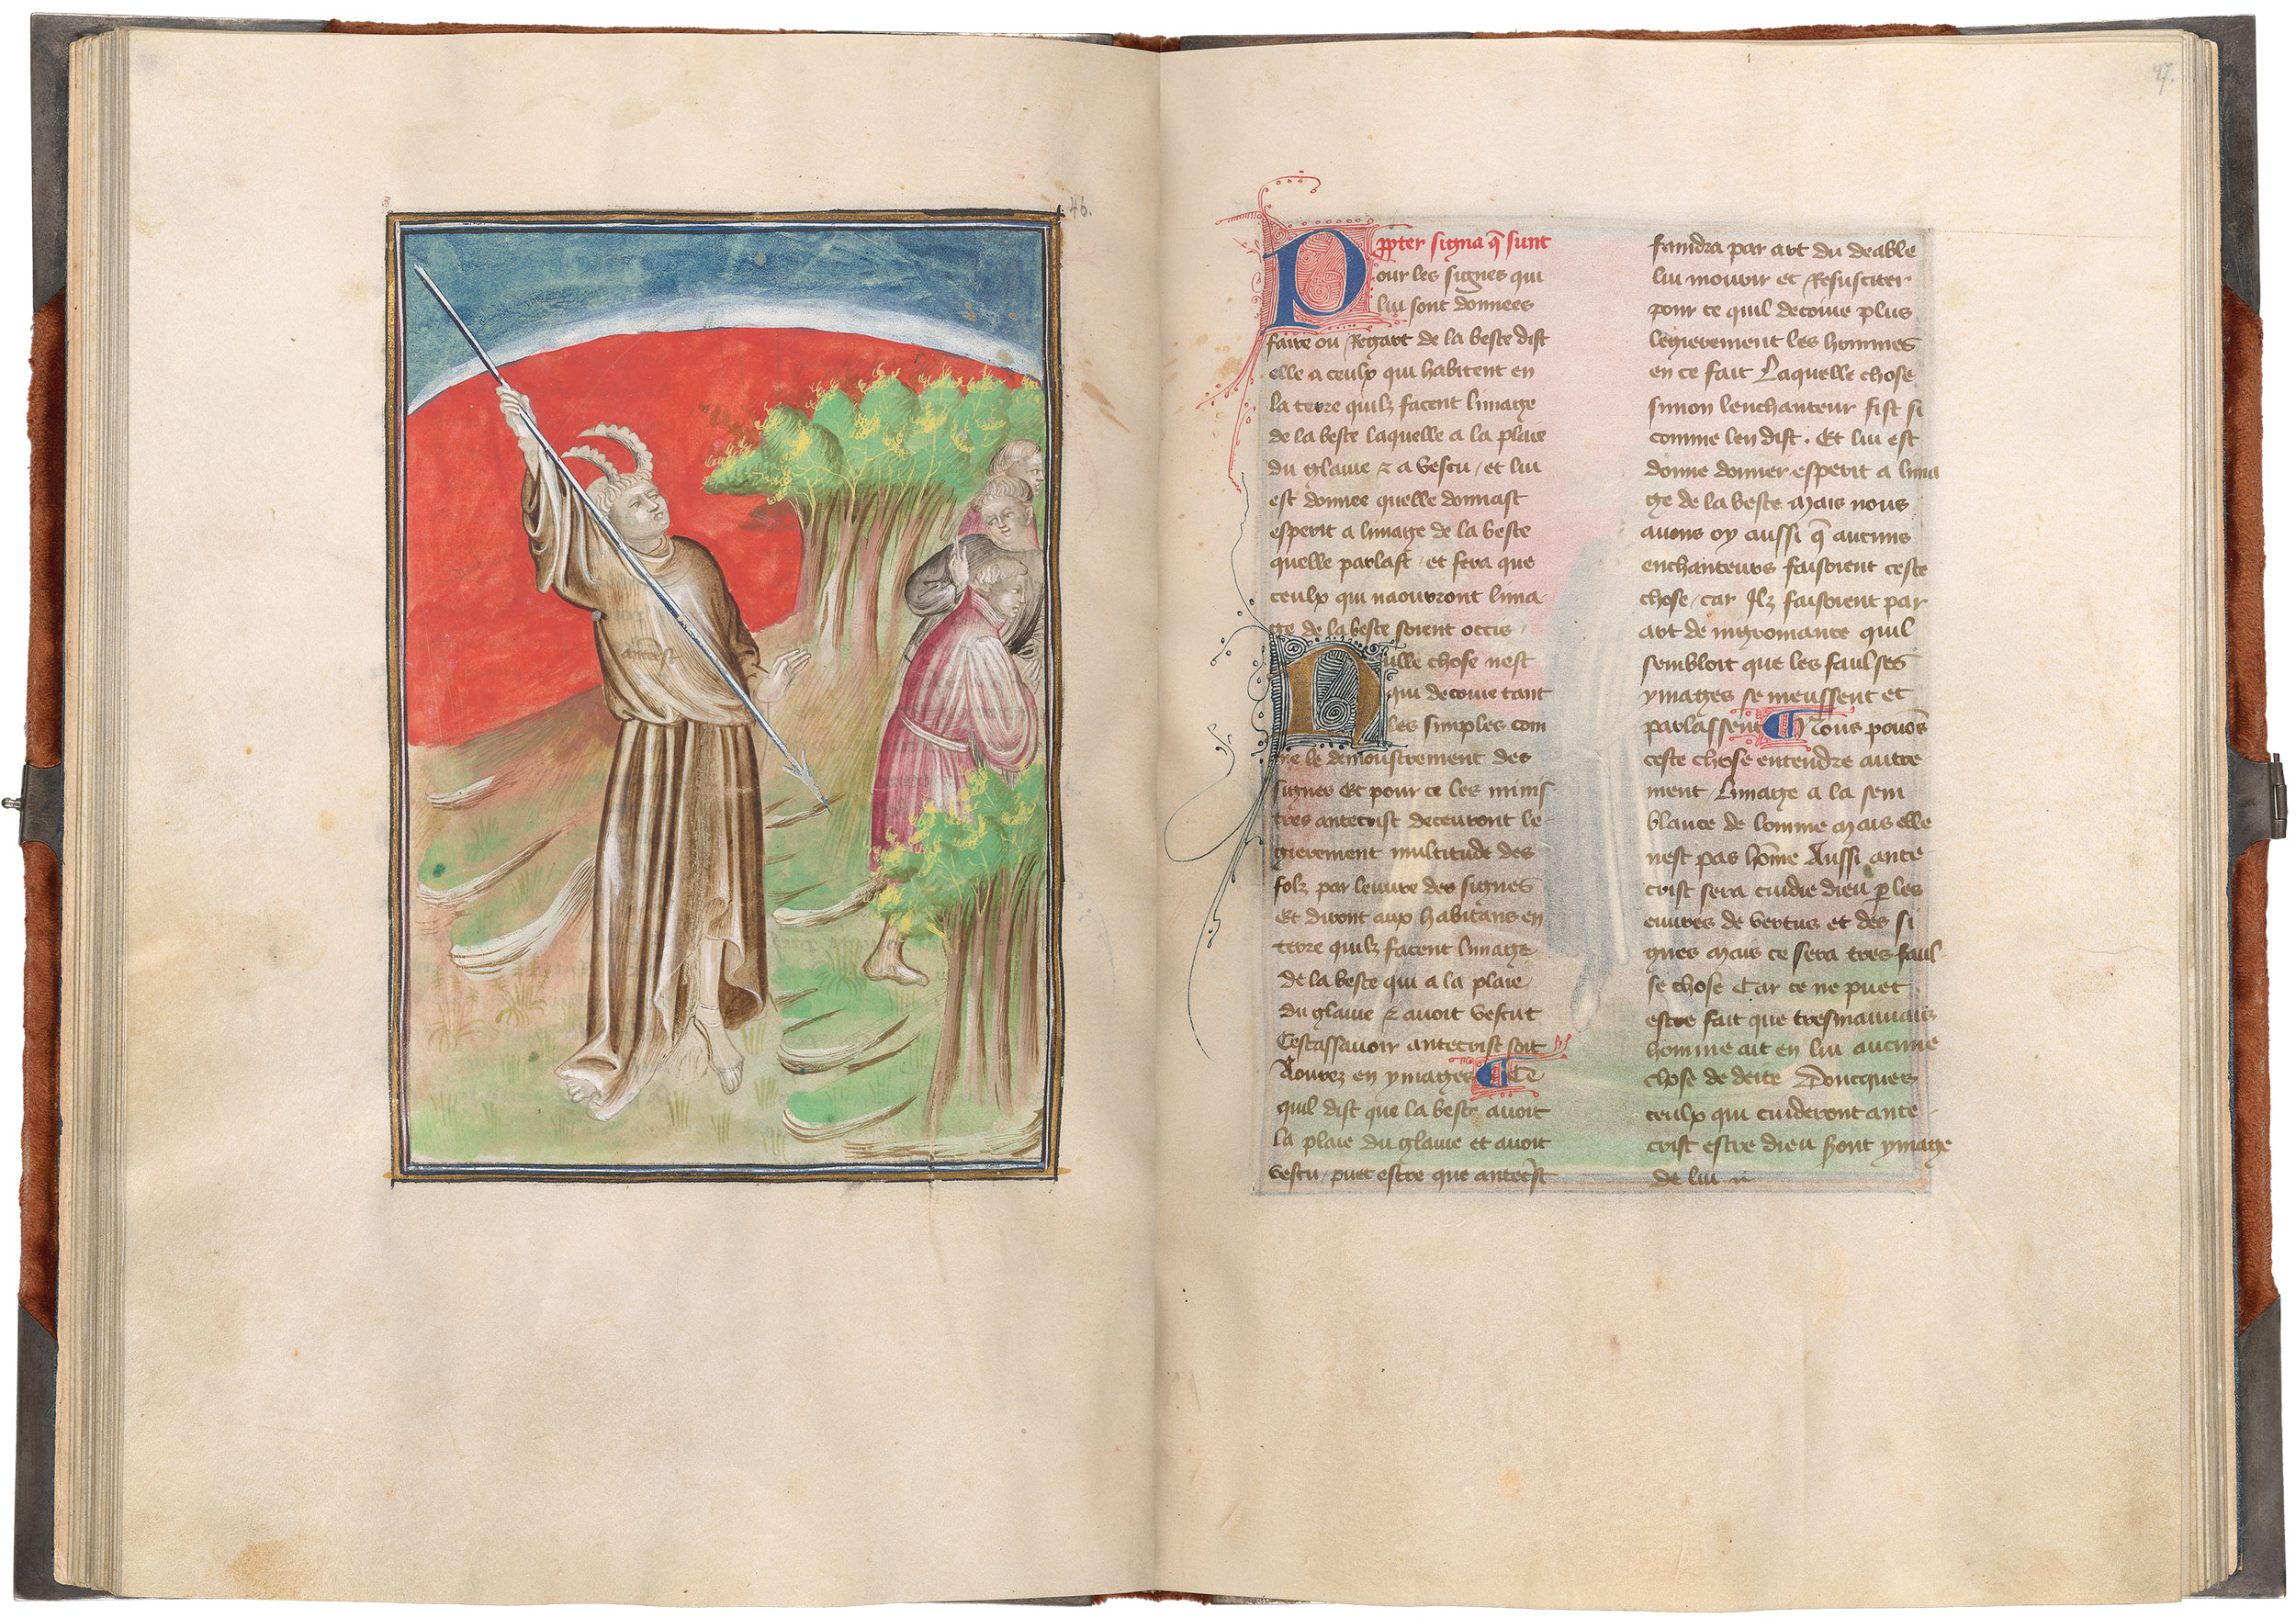 46.
47.
Propter signa q̃ sunt
Pour les signes qui
lui sont donnees
faire ou regart de la beste dist
elle a ceulx qui habitent en
la terre quilz facent limage
de la beste laquelle a la plaie
du glaiue ⁊ a vescu / et lui
est donnee quelle donnast
esperit a limage de la beste
quelle parlast / et fera que
ceulx qui naouront lima-
ge de la beste soient occis /
Nulle chose nest
qui decoiue tant
les simples com
me le demoustrement des
signes Et pour ce les minis-
tres antecrist deceuront le-
gierement multitude des
folz par leuure des signes
Et diront aux habitans en
terre quilz facent limage
de la beste qui a la plaie
du glaiue ⁊ auoit vescut
Cestassauoir antecrist soit
Aourez en ymages ¶ Ce
quil dist que la beste auoit
la plaie du glaiue et auoit
vescu / puet estre que antecr̃st
faindra par art du deable
lui mouuir et resusciter
pour ce quil decoiue plus
legierement les hommes
en ce fait Laquelle chose
simon lenchanteur fist si
comme len dist . Et lui est
donne donner esperit a lima
ge de la beste Mais nous
auons oy aussi q̃ aucuns
enchanteurs faisoient ceste
chose / car Ilz faisoient par
art de nigromance quil
sembloit que les faulses
ymages se meussent et
parlassent ¶ Nous pouõs
ceste chose entendre autre
ment / Limage a la sem
blance de lomme Mais elle
nest pas hõme Aussi ante
crist sera cuidie dieu ꝑ les
euures de vertus et des si
gnes Mais ce sera tres faul-
se chose Car ce ne puet
estre fait que tresmauuais
homme ait en lui aucune
chose de deite Doncques
ceulx qui cuideront ante-
crist estre dieu sont ymage
de lui